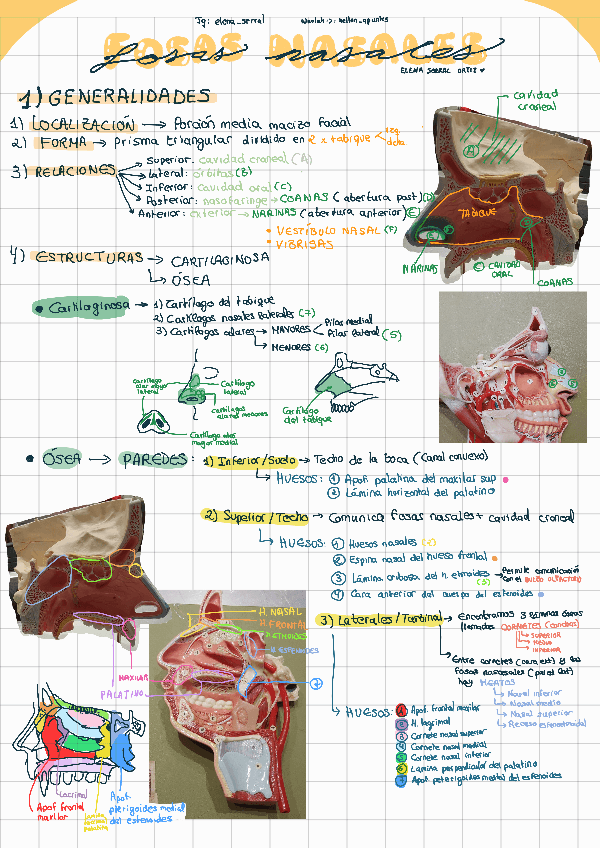 Ig: elena_serral
FOSAS NASALES
fosas nasales
ELENA SERRAL ORTIZ ♥
1) GENERALIDADES
1) LOCALIZACIÓN → Porción media macizo facial
2) FORMA → Prisma triangular dividido en 2 x tabique < izq
dcha
3) RELACIONES
Superior: cavidad craneal (A)
Lateral: órbitas (B)
Inferior: cavidad oral (C)
Posterior: nasofaringe → COANAS (abertura post) (D)
Anterior: exterior → NARINAS (abertura anterior) (E)
• VESTÍBULO NASAL (F)
• VIBRISAS
cavidad
craneal
A
TABIQUE
E
F
NARINAS
C CAVIDAD
ORAL
COANAS
4) ESTRUCTURAS → CARTILAGINOSA
↳ ÓSEA
• Cartilaginosa → 1) Cartílago del tabique
2) Cartílagos nasales laterales (7)
3) Cartílagos alares → MAYORES < Pilar medial
Pilar lateral (5)
↳ MENORES (6)
Cartílago
lateral
Cartílagos
alares menores
Cartílago alar
mayor medial
Cartílago
del tabique
• ÓSEA → PAREDES: 1) Inferior/Suelo → Techo de la boca (Canal convexo)
↳ HUESOS: ① Apof. palatina del maxilar sup •
② Lámina horizontal del palatino
2) Superior/Techo → Comunica fosas nasales + cavidad craneal
↳ HUESOS: ① Huesos nasales
② Espina nasal del hueso frontal •
③ Lámina cribosa del h. etmoides → Permite comunicación
con el BULBO OLFATORIO
④ Cara anterior del cuerpo del esfenoides •
H. NASAL
H. FRONTAL
H. ETMOIDES
H. ESFENOIDES
MAXILAR
PALATINO
3) Laterales/Turbinal → Encontramos 3 láminas óseas
llamadas CORNETES (conchas)
→ SUPERIOR
→ MEDIO
→ INFERIOR
Entre cornetes (cara ext) y las
fosas nasales (pared lat)
hay MEATOS
→ Nasal inferior
→ Nasal medio
→ Nasal superior
→ Receso esfenoetmoidal
↳ HUESOS: ① Apof. frontal maxilar
② H. lagrimal
③ Cornete nasal superior
④ Cornete nasal medial
⑤ Cornete nasal inferior
⑥ Lámina perpendicular del palatino
⑦ Apof. pterigoides medial del esfenoides
Lacrimal
Apof frontal
maxilar
Apof.
pterigoides medial
del esfenoides